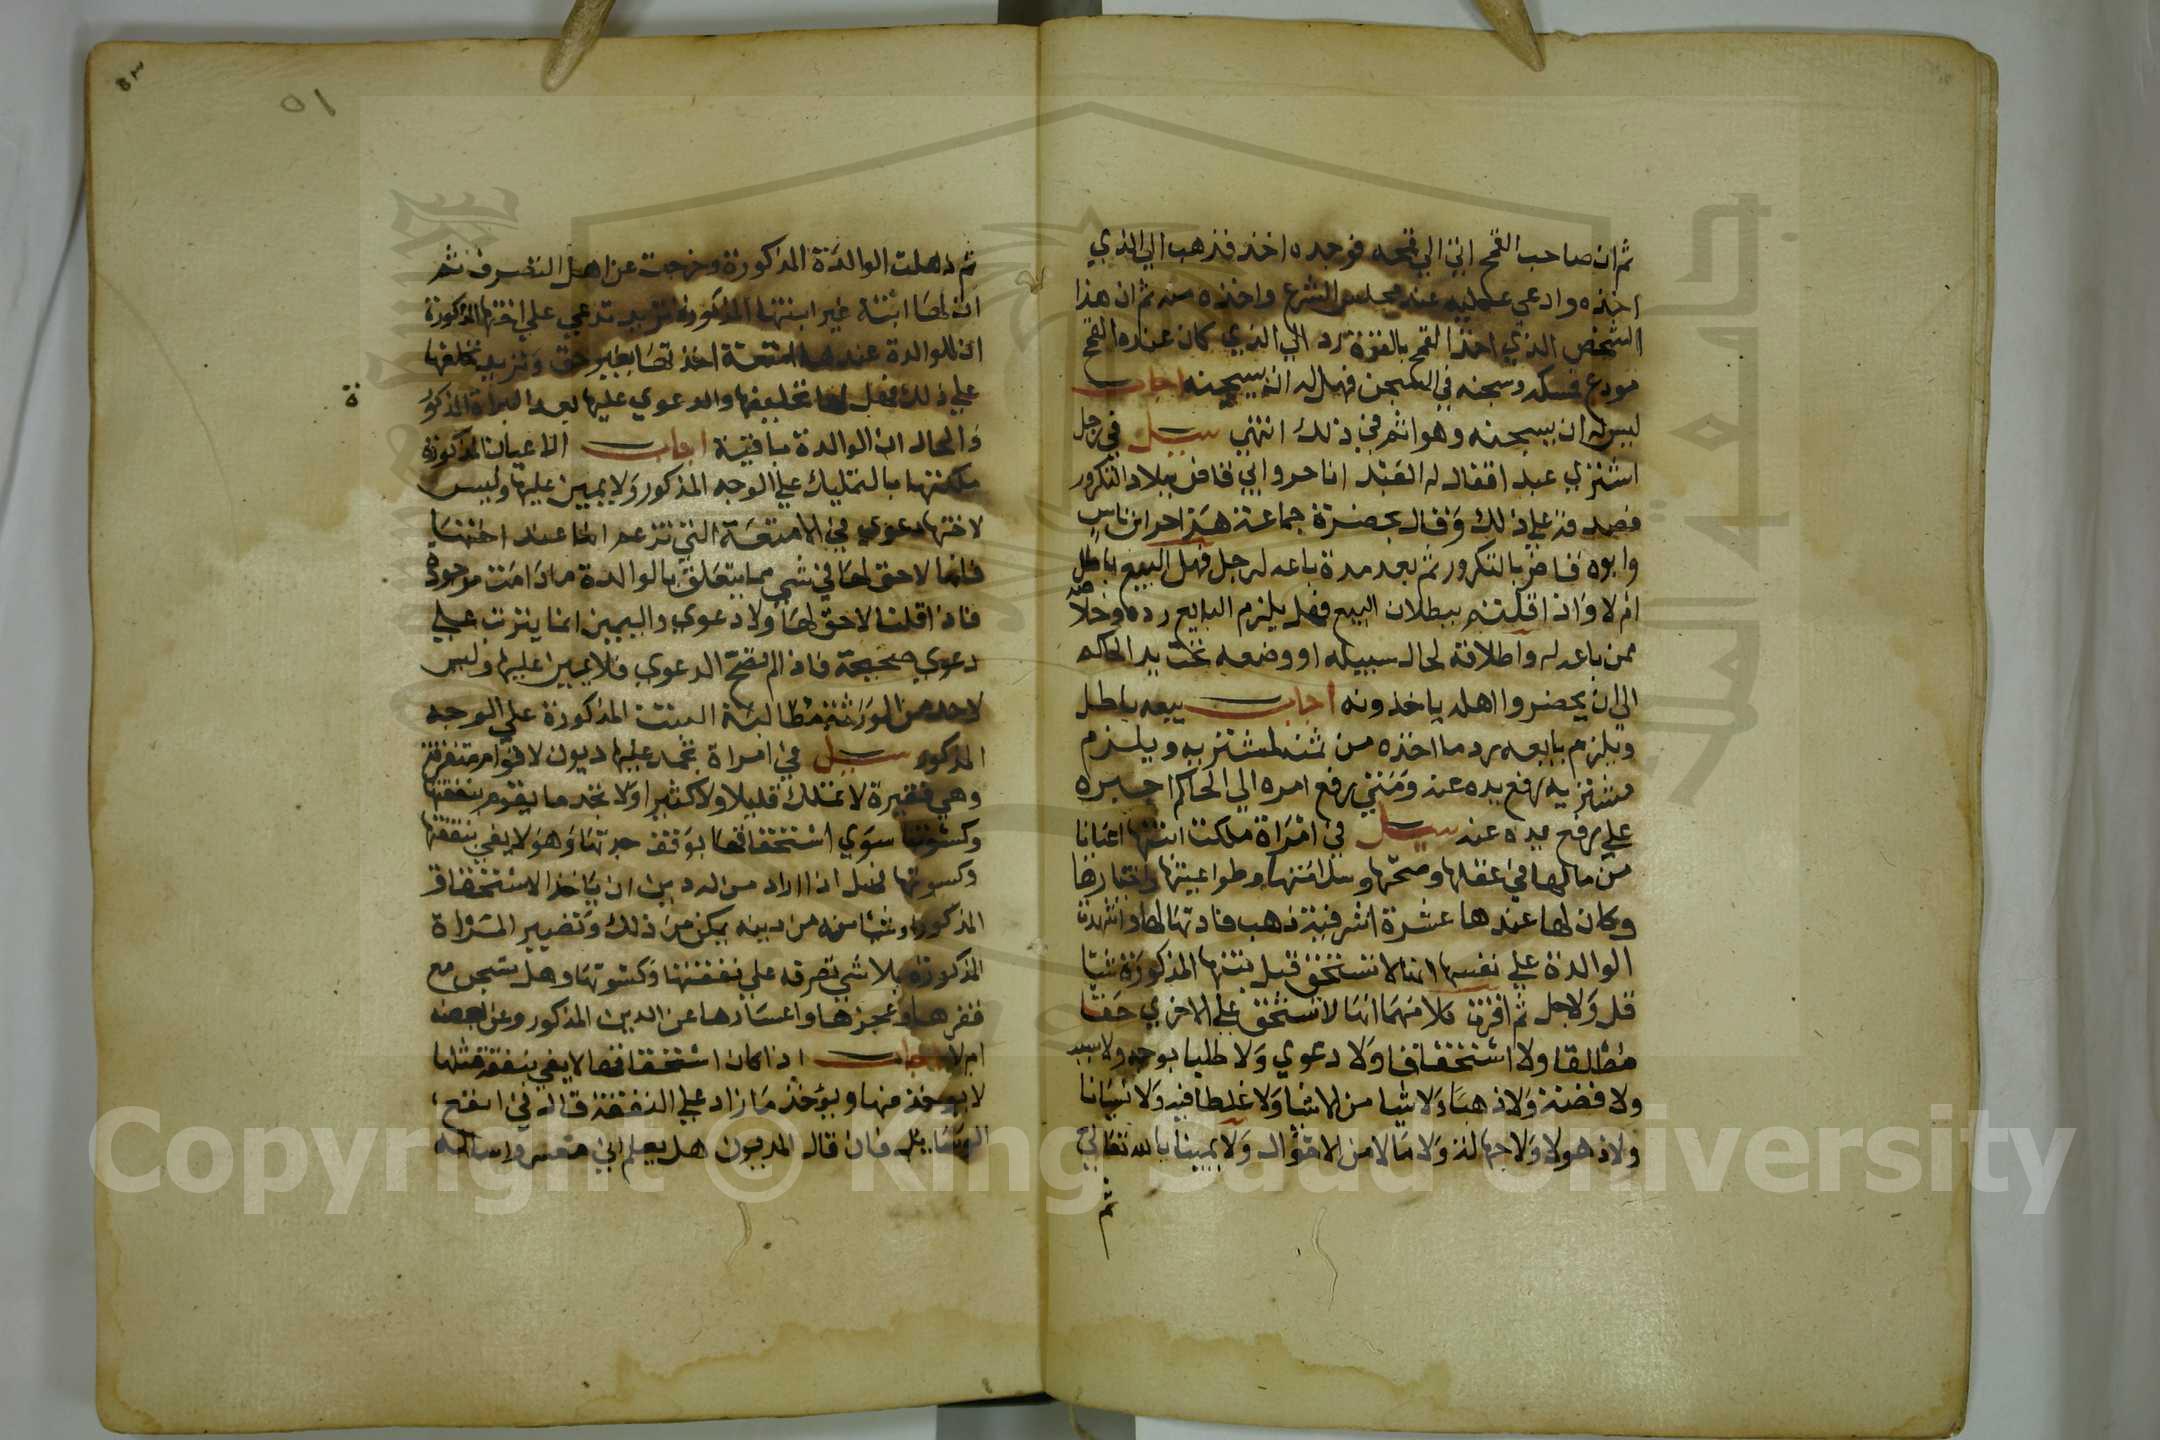 ثم ان صاحب القمح اتي الي قمحه فوجده اخذ فذهب الي الذي
اخذه وادعي عليه عند مجلس الشرع واخذه منه ثم ان هذا
الشخص الذي اخذ القمح بالقوة رد الي الذي كان عنده القمح
مودع فمسكه وسجنه في السجن فهل له ان يسجنه اجاب
ليس له ان يسجنه وهو اثم في ذلك انتهي سيل في رجل
اشتري عبد افقال له العبد انا حر وابي قاض ببلاد التكرور
فصدقه علي ذلك وقال بحضرة جماعة هذا حر ابن ناس
وابوه قاض بالتكرور ثم بعد مدة باعه لرجل فهل البيع باطل
ام لا واذا قلتم ببطلان البيع فهل يلزم البايع رده وخلاصه
ممن باعه له واطلاقه لحال سبيله او وضعه تحت يد الحاكم
الي ان يحضروا اهله ياخذونه اجاب بيعه باطل
ويلزم بايعه يرد ما اخذه من ثمنه لمشتريه ويلزم
مشتريه رفع يده عنه ومتي رفع امره الي الحاكم اجبره
علي رفع يده عنه سيل في امراة ملكت ابنتها اعيانا
من مالها في عقلها وصحتها وسلامتها وطواعيتها واختيارها
وكان لها عندها عشرة اشرفية ذهب فادتها لها واشهدت
الوالدة علي نفسها انها لا تستحق قبل بنتها المذكورة شيا
قل ولا جل ثم اقرت كلا منهما انها لا تستحق علي الاخري حقا
مطلقا ولا استحقاقا ولا دعوي ولا طلبا بوجه ولا سبب
ولا فضة ولا ذهبا ولا شيا من الاشيا ولا غلطا فيه ولا نسيانا
ولا ذهولا ولا جهالة ولا مالا من الاموال ولا يمينا بالله تعالي
ثم
٥١
ثم ذهلت الوالدة المذكورة وخرجت عن اهل التصرف ثم
ان لها ابنة غير ابنتها المذكورة تريد تدعي علي اختها المذكورة
ان للوالدة عندها امتعة اخذتها بغير حق وتريد تحلفها
علي ذلك فهل لها تحليفها والدعوي عليها بعد البراة المذكورة
والحال ان الوالدة باقية اجاب الاعيان المذكورة
ملكتها بالتمليك علي الوجه المذكور ولا يمين عليها وليس
لاختها دعوي في الامتعة التي تزعم انها عند اختها
فانها لا حق لها في شي مما يتعلق بالوالدة ما دامت موجودة
فاذا قلنا لا حق لها ولا دعوي واليمين انما يترتب علي
دعوي صحيحة فاذا لم تصح الدعوي فلا يمين عليها وليس
لاحد من الورثة مطالبة البنت المذكورة علي الوجه
المذكور سيل في امراة تجمد عليها ديون لاقوام متفرقة
وهي فقيرة لا تملك قليلا ولا كثيرا ولا تجد ما يقوم بنفقتها
وكسوتها سوي استحقاقها بوقف جدتها وهو لا يفي بنفقتها
وكسوتها فهل اذا اراد من له دين ان ياخذ الاستحقاق
المذكور او شيا منه من دينه يمكن من ذلك وتصير المراة
المذكورة بلا شي تصرفه علي نفقتها وكسوتها وهل تسجن مع
فقرها وعجزها واعسارها عن الدين المذكور وعن بعضه
ام لا اجاب اذا كان استحقاقها لا يفي بنفقة مثلها
لا يوخذ منها ويؤخذ ما زاد علي النفقة قال في انفع
الوسايل فان قال المديون هل يعلم اني معسر واساله